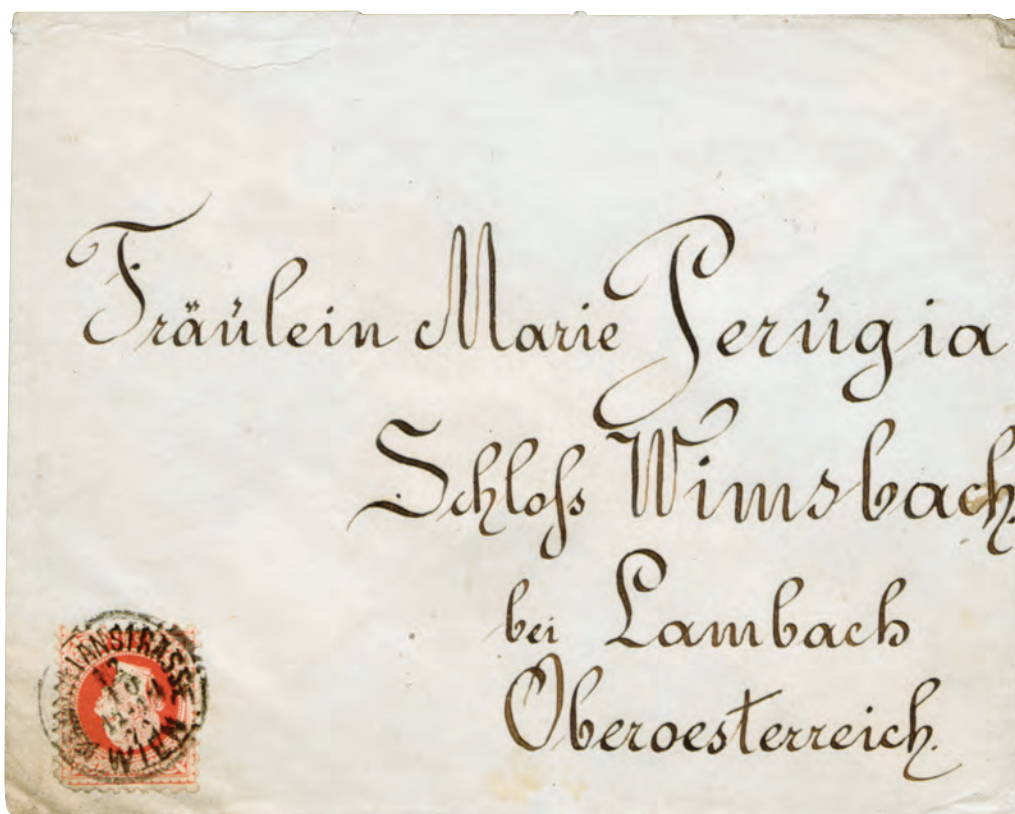 Fräulein Marie Perugia
Schloſs Wimsbach
bei Lambach
Oberoesterreich.
WIEN